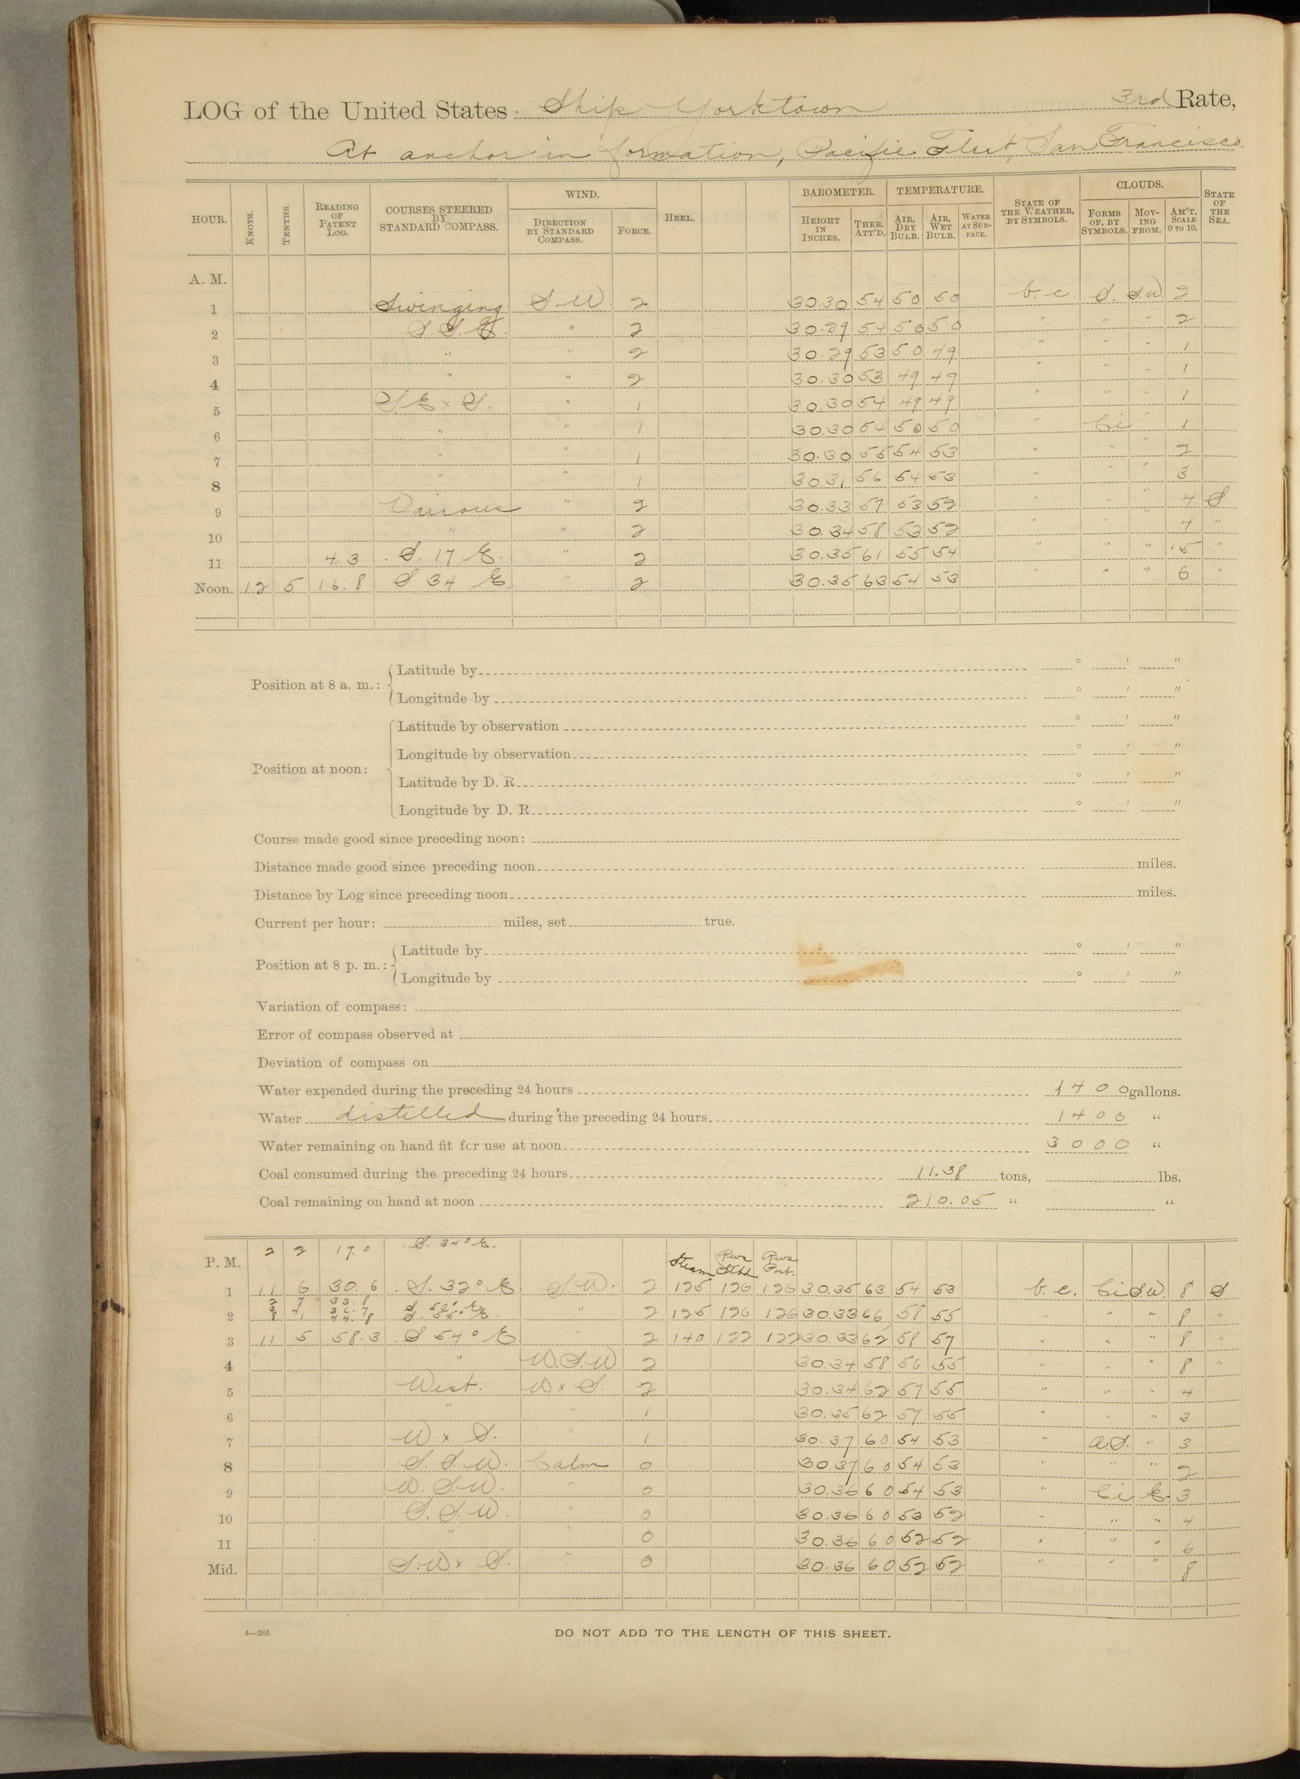 LOG of the United States Ship Yorktown 3rd Rate,
At anchor in formation, Pacific Fleet, San Francisco.
HOUR. KNOTS. TENTHS. READING OF PATENT LOG. COURSES STEERED BY STANDARD COMPASS. WIND. DIRECTION BY STANDARD COMPASS. FORCE. HEEL. BAROMETER. HEIGHT IN INCHES. THER. ATT'D. TEMPERATURE. AIR, DRY BULB. AIR, WET BULB. WATER AT SURFACE. STATE OF THE WEATHER, BY SYMBOLS. CLOUDS. FORMS OF, BY SYMBOLS. MOVING FROM. AM'T. SCALE 0 TO 10. STATE OF THE SEA.
A. M.
1 Swinging S W. 2 30.30 54 50 50 b. c. S. SW 2
2 S. S. E. " 2 30.29 54 50 50 " " " 2
3 " " 2 30.29 53 50 49 " " " 1
4 " " 2 30.30 53 49 49 " " " 1
5 S. E x S. " 1 30.30 54 49 49 " " " 1
6 " " 1 30.30 54 50 50 " Ci " 1
7 " " 1 30.30 55 54 53 " " " 2
8 " " 1 30.31 56 54 53 " " " 3
9 Various " 2 30.33 57 53 52 " " " 4 S
10 " " 2 30.34 58 53 52 " " " 4 "
11 4.3 S. 17 E. " 2 30.35 61 55 54 " " " 5 "
Noon. 12 5 16.8 S 34 E " 2 30.35 63 54 53 " " " 6 "
Position at 8 a. m.: Latitude by ° ' "
Longitude by ° ' "
Position at noon: Latitude by observation ° ' "
Longitude by observation ° ' "
Latitude by D. R. ° ' "
Longitude by D. R. ° ' "
Course made good since preceding noon:
Distance made good since preceding noon miles.
Distance by Log since preceding noon miles.
Current per hour: miles, set true.
Position at 8 p. m.: Latitude by ° ' "
Longitude by ° ' "
Variation of compass:
Error of compass observed at
Deviation of compass on
Water expended during the preceding 24 hours 1400 gallons.
Water distilled during the preceding 24 hours 1400 "
Water remaining on hand fit for use at noon 3000 "
Coal consumed during the preceding 24 hours 11.38 tons, lbs.
Coal remaining on hand at noon 210.05 " "
P. M. 2 2 17.0 S. 34° E. Steam Revs Stbd Revs Port.
1 11 6 30.6 S. 32° E S.W. 2 125 126 126 30.35 63 54 53 b. c. Ci SW. 8 S
2 " 2 125 126 126 30.33 66 58 55 " " " 8 "
3 11 5 58.3 S 54° E " 2 140 122 122 30.33 62 58 57 " " " 8 "
4 " W.S.W 2 30.34 58 56 55 " " " 8 "
5 West. W x S. 2 30.34 62 57 55 " " " 4
6 " " 1 30.35 62 57 55 " " " 3
7 W x S. " 1 30.37 60 54 53 " a.S. " 3
8 S. S. W. Calm 0 30.37 60 54 53 " " " 2
9 W. S. W. " 0 30.36 60 54 53 " Ci E. 3
10 S. S. W. " 0 30.36 60 53 52 " " " 4
11 " " 0 30.36 60 52 52 " " " 6
Mid. S.W x S. " 0 30.36 60 52 52 " " " 8
4—265 DO NOT ADD TO THE LENGTH OF THIS SHEET.